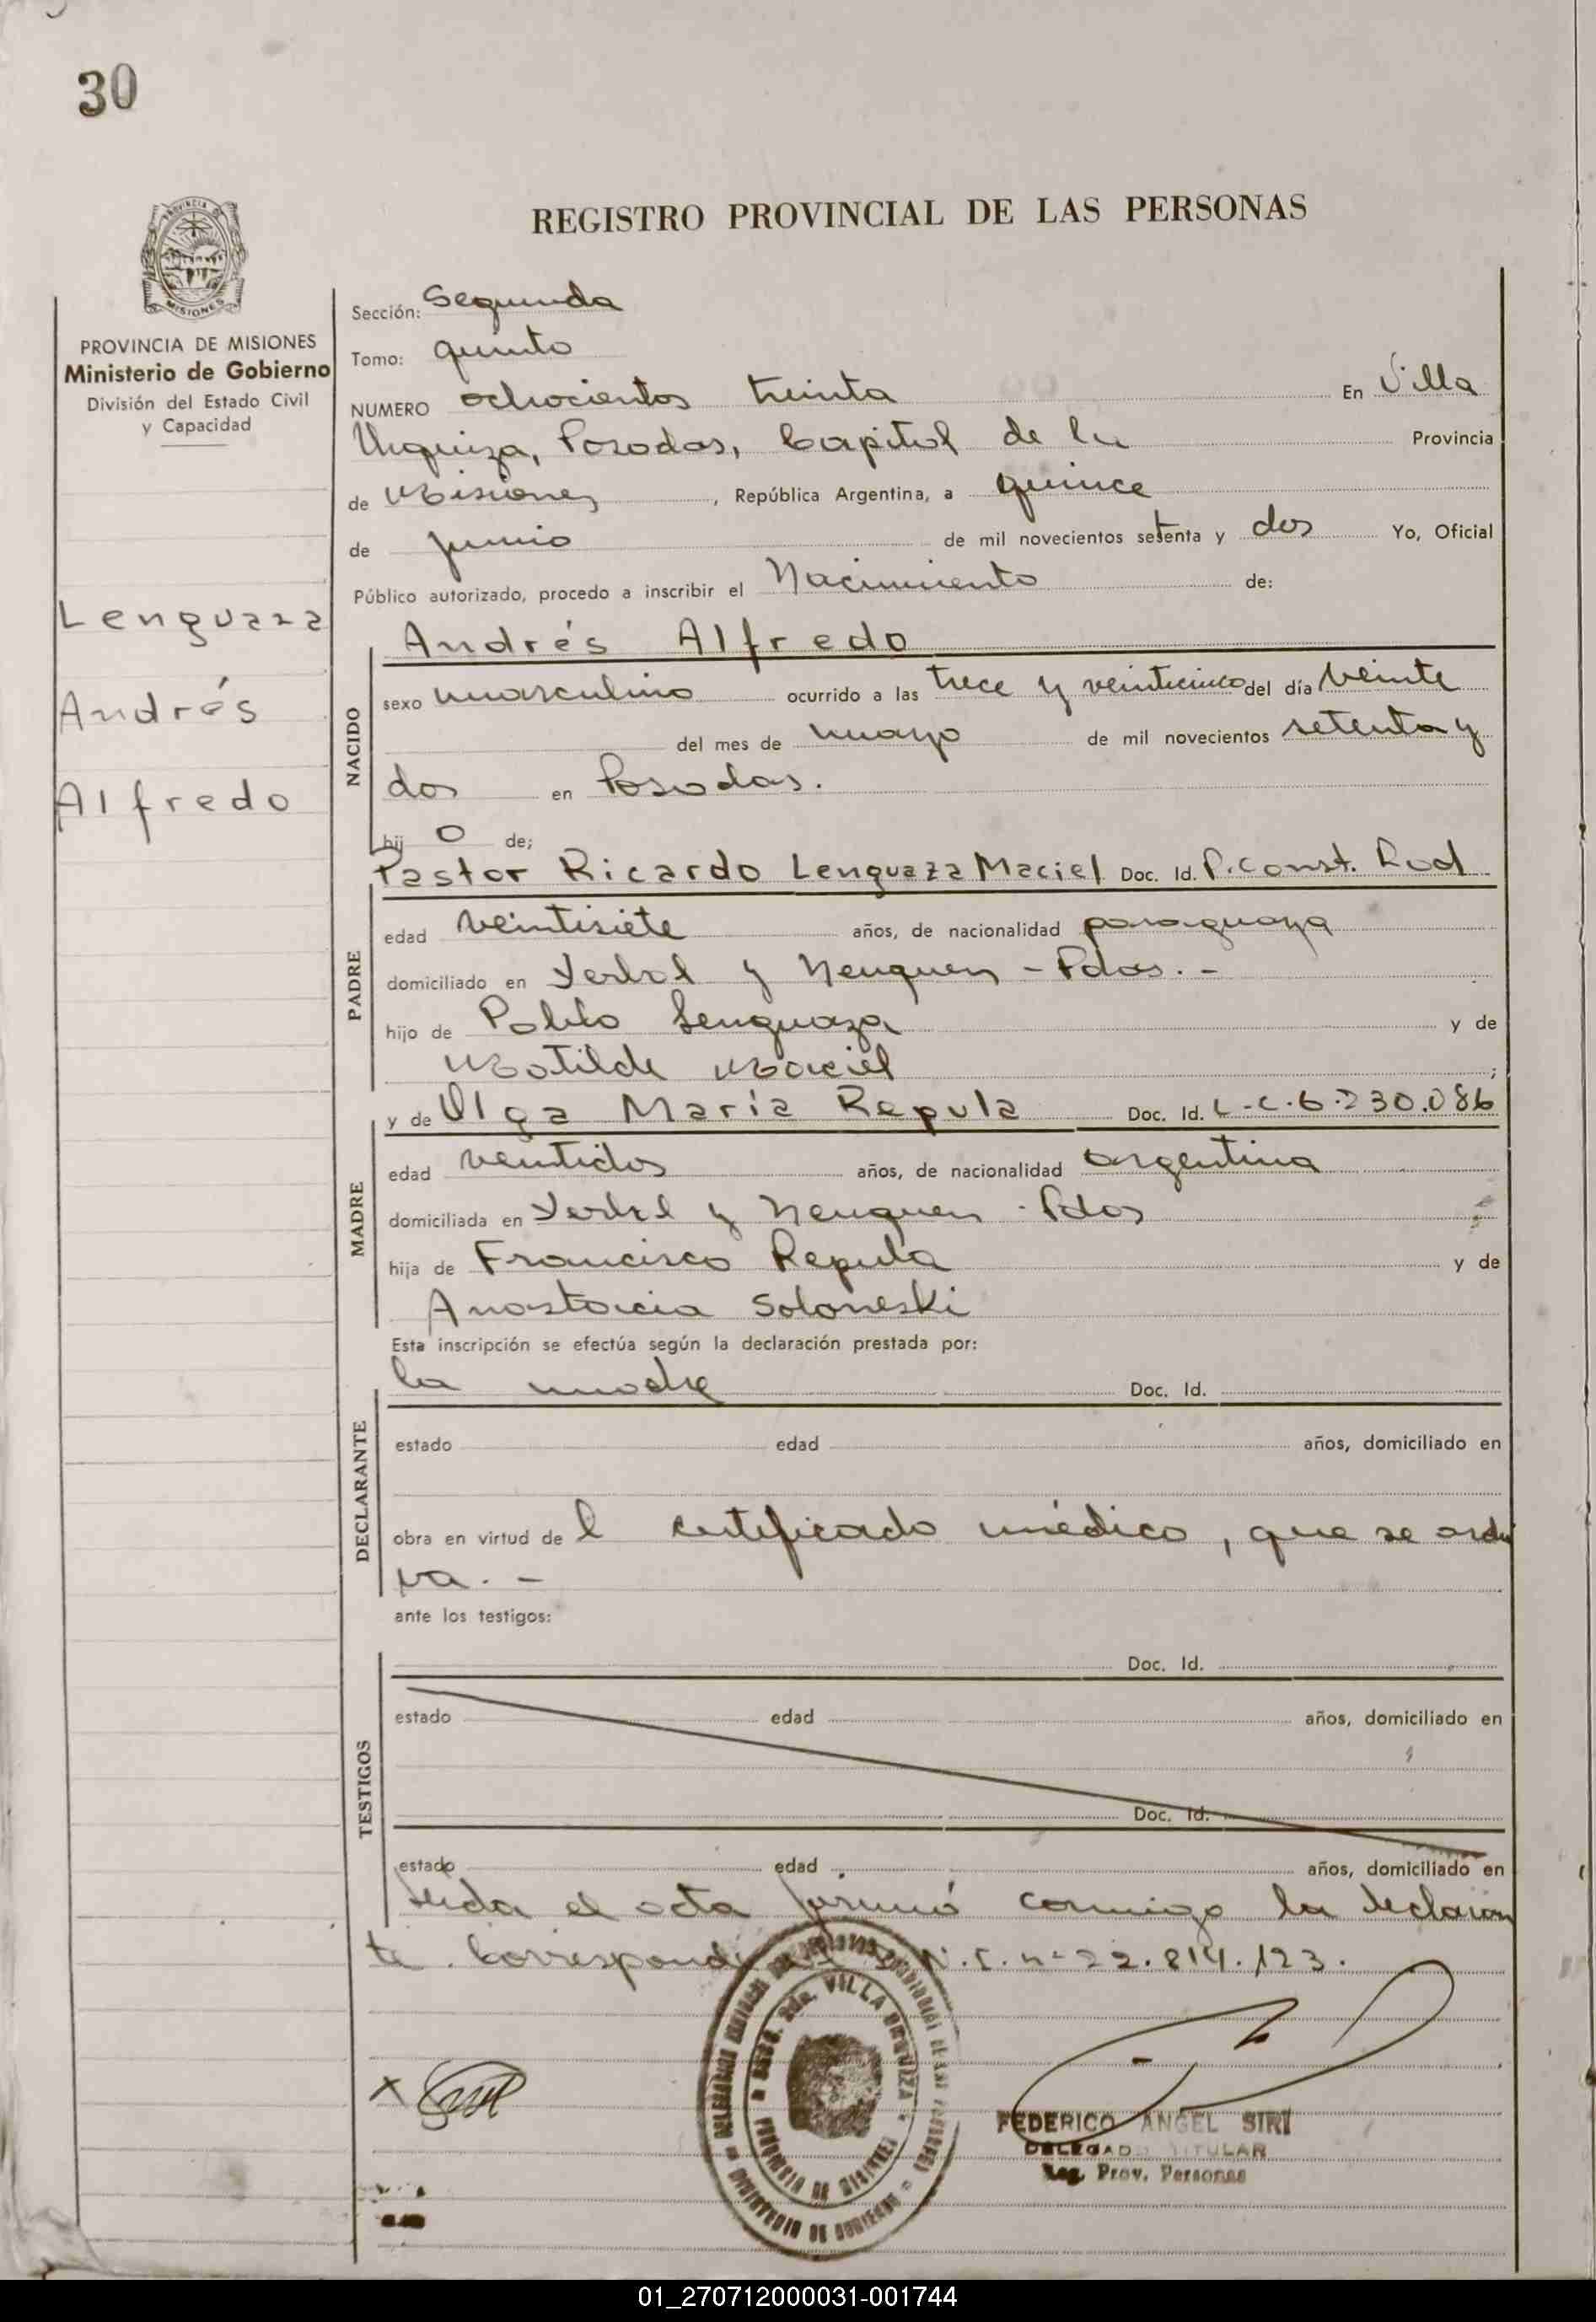 30
PROVINCIA DE MISIONES
Ministerio de Gobierno
División del Estado Civil
y Capacidad
Lenguaza
Andrés
Alfredo
REGISTRO PROVINCIAL DE LAS PERSONAS
Sección: Segunda
Tomo: quinto
NUMERO ochocientos treinta En Villa
Urquiza, Posadas, Capital de la Provincia
de Misiones, República Argentina, a quince
de junio de mil novecientos setenta y dos Yo, Oficial
Público autorizado, procedo a inscribir el Nacimiento de:
NACIDO
Andrés Alfredo
sexo masculino ocurrido a las trece y veinticinco del día veinte
del mes de mayo de mil novecientos setenta y
dos en Posadas.
hij o de;
PADRE
Pastor Ricardo Lenguaza Maciel Doc. Id. P. Const. Rad
edad veintisiete años, de nacionalidad paraguaya
domiciliado en Yerbal y Neuquen - Pdas. -
hijo de Pablo Lenguaza y de
Matilde Maciel ;
MADRE
y de Olga María Repula Doc. Id. L-C.6.230.086
edad veintidos años, de nacionalidad argentina
domiciliada en Yerbal y Neuquen - Pdas
hija de Francisco Repula y de
Anastacia Soloneski
Esta inscripción se efectúa según la declaración prestada por:
DECLARANTE
la madre Doc. Id.
estado edad años, domiciliado en
obra en virtud de l certificado médico, que se archi
va. -
ante los testigos:
TESTIGOS
Doc. Id.
estado edad años, domiciliado en
Doc. Id.
estado edad años, domiciliado en
Leida el acta firmó conmigo la declaran
te. N.I. nº 22.814.123.
2da. VILLA URQUIZA
PROVINCIA DE MISIONES
MINISTERIO DE GOBIERNO
FEDERICO ANGEL SIRI
DELEGADO TITULAR
Reg. Prov. Personas
01_270712000031-001744